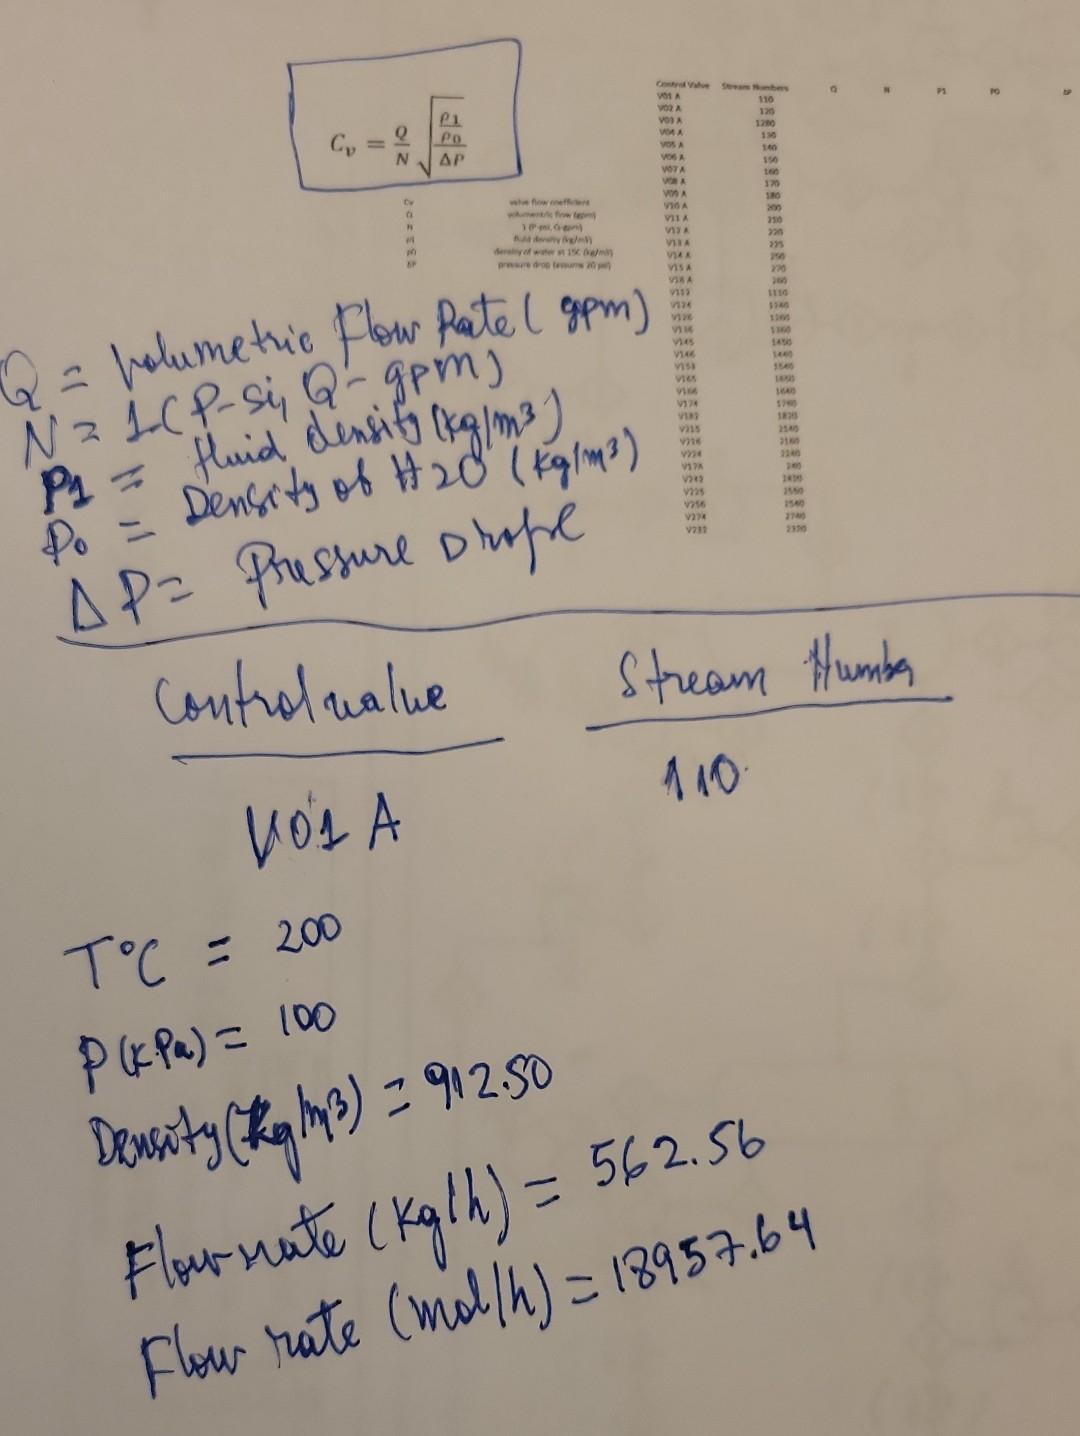 C_v = Q/N √((ρ1/ρ0)/ΔP)
Cv valve flow coefficient
Q volumentric flow (gpm)
N 1 (P-psi, Q-gpm)
ρ1 fluid density (kg/m3)
ρ0 density of water at 15C (kg/m3)
ΔP pressure drop (assume 20 psi)
Control Valve Stream Numbers Q N P1 P0 ΔP
V01 A 110
V02 A 120
V03 A 1280
V04 A 130
V05 A 140
V06 A 150
V07 A 160
V08 A 170
V09 A 180
V10 A 200
V11 A 210
V12 A 220
V13 A 225
V14 A 250
V15 A 270
V16 A 260
V112 1110
V124 1240
V126 1260
V136 1360
V145 1450
V146 1440
V153 1540
V165 1650
V166 1640
V174 1740
V182 1820
V215 2140
V216 2160
V224 2240
V17A 240
V242 2420
V225 2550
V256 2540
V274 2740
V232 2320
Q = Volumetric Flow Rate ( gpm)
N = 1 ( P-Si, Q- gpm)
P1 = fluid density (kg/m³)
P0 = Density of H2O (kg/m³)
ΔP = Pressure Drope
Control value Stream Number
V01 A 110
T°C = 200
P (KPa) = 100
Density (kg/m3) = 912.50
Flow rate (Kg/h) = 562.56
Flow rate (mol/h) = 18957.64